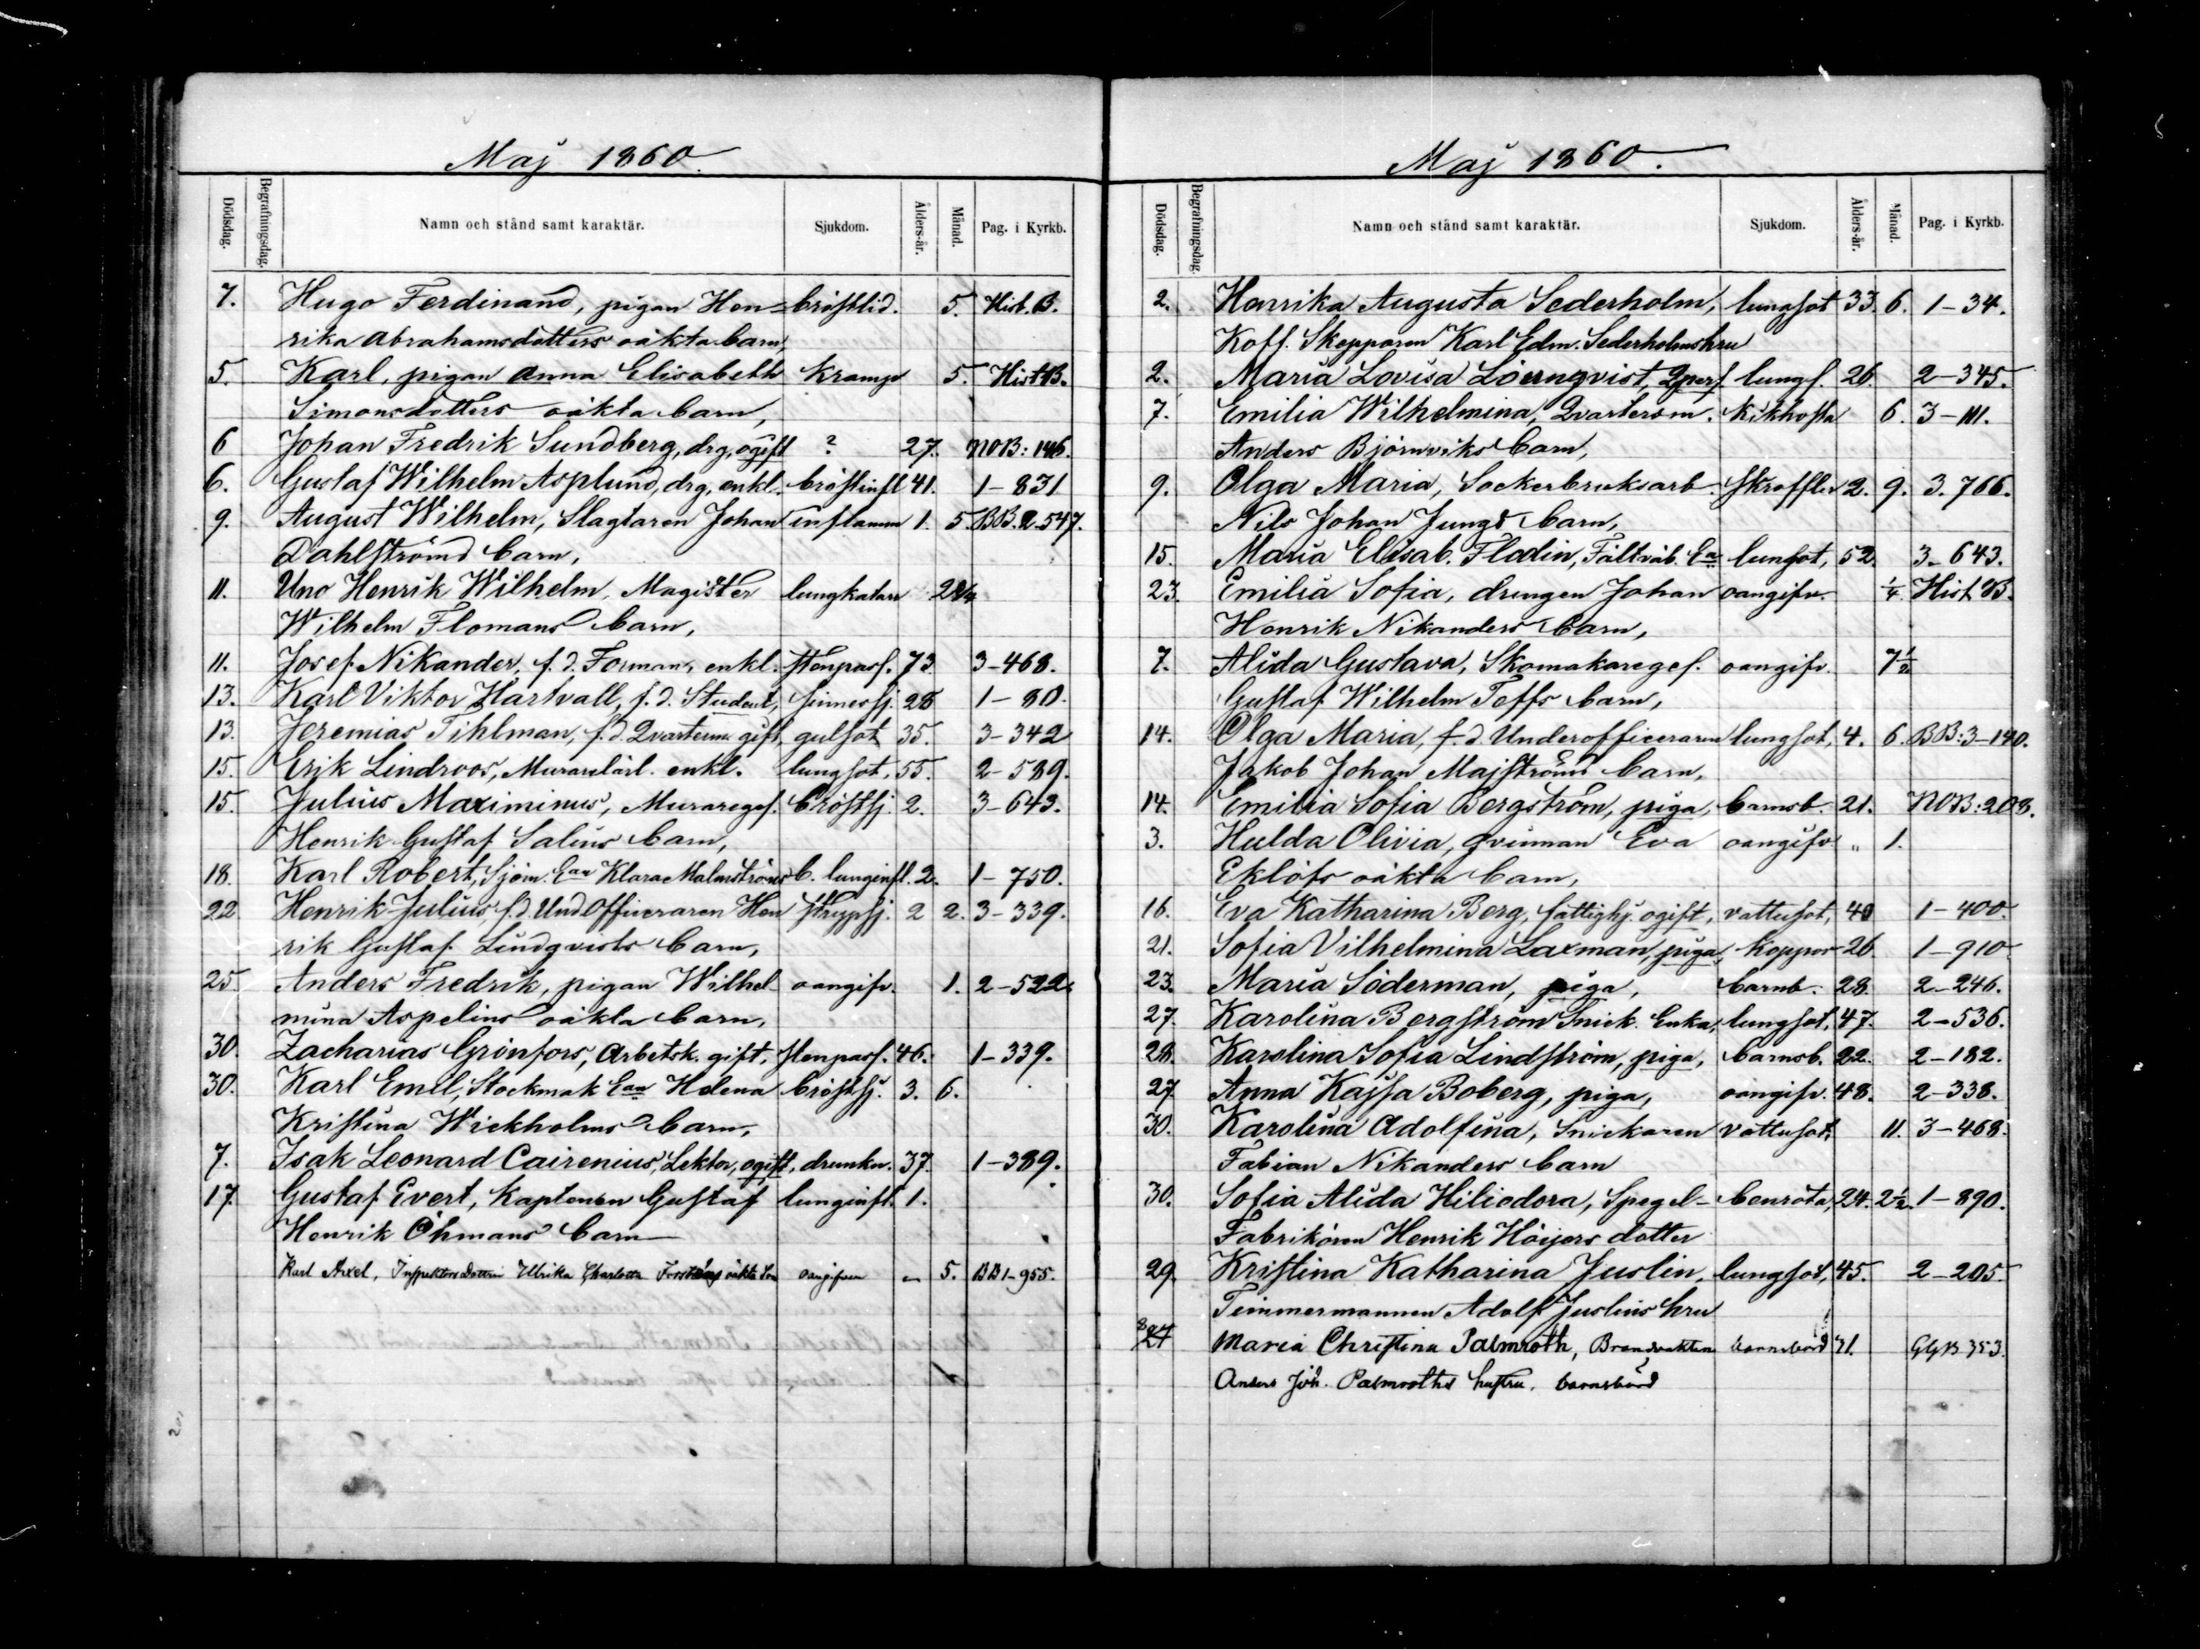 Maj 1860.
Dödsdag. Begrafningsdag. Namn och stånd samt karaktär. Sjukdom. Ålders-år. Månad. Pag. i Kyrkb.
7. Hugo Ferdinand, pigan Hen- bröstlid. 5. Hist. B.
rika Abrahamsdotters oäkta barn,
5. Karl, pigan Anna Elisabeth kramp 5. Hist B.
Simonsdotters oäkta barn,
6 Johan Fredrik Sundberg, drg, ogift ? 27. NOB: 146.
6. Gustaf Wilhelm Asplund, drg, enkl. bröstinfl 41. 1-831
9. August Wilhelm, Slagtaren Johan inflamm 1. 5. BB. 2-547.
Dahlströms barn,
11. Uno Henrik Wilhelm, Magister lungkatarr
Wilhelm Flomans barn,
11. Josef Nikander, f.d. Forman, enkl. stenpass. 73 3-468.
13. Karl Viktor Hartvall, f.d. Student, sinnessj. 28 1-80.
13. Jeremias Tihlman, f.d. Qvarterm gift, gulsot 35. 3-342
15. Erik Lindroos, enkl. lungsot, 55. 2-589.
15. Julius Maximinus, Muraregес. bröstsj. 2. 3-643.
Henrik Gustaf Salins barn,
18. Karl Robert, Sjöm. Ean Klara Malmströms b. lunginfl. 2. 1-750.
22 Henrik Julius, f.d. UndOfficeraren Hen strypsj. 2 2. 3-339.
rik Gustaf Lindqvists barn,
25. Anders Fredrik, pigan Wilhel- oangifv. 1. 2-522.
mina Aspelins oäkta barn,
30. Zacharias Grönfors, Arbetsk. gift, stenpass. 46. 1-339.
30. Karl Emil, Stockmak Ean Helena bröstsj. 3. 6.
Kristina Wickholms barn,
7. Isak Leonard Cairenius, Lektor, ogift, drunkn. 37. 1-389.
17. Gustaf Evert, Kaptenen Gustaf lunginfl. 1.
Henrik Öhmans barn
Karl Axel, Inspektors Dottren Ulrika Charlotta oäkta Son oangifven " 5. BB1-955.
Maj 1860.
Dödsdag. Begrafningsdag. Namn och stånd samt karaktär. Sjukdom. Ålders-år. Månad. Pag. i Kyrkb.
2. Henrika Augusta Sederholm, lungsot 33. 6. 1-34.
Koff. Skepparen Karl Edm. Sederholms hru
2. Maria Lovisa lungs. 26. 2-345.
7. Emilia Wilhelmina, Qvartersm. kikhosta 6. 3-111.
Anders Björnviks barn,
9. Olga Maria, Sockerbruksarb. skroffler 2. 9. 3.766.
Nils Johan Jungs barn,
15. Maria Elisab. Flodin, Fältväb. Ea lungsot, 52 3-643.
23. Emilia Sofia, drengen Johan oangifv. 1/4. Hist B.
Henrik Nikanders barn,
7. Alida Gustava, Skomakareges. oangifv. 7 1/2
Gustaf Wilhelm Teffs barn,
14. Olga Maria, f.d. Underofficeraren lungsot, 4. 6. BB: 3-140.
Jakob Johan Majströms barn,
14. Emilia Sofia Bergström, piga, barnsb. 21. NOB: 208.
3. Hulda Olivia, qvinnan Eva oangifv " 1.
Eklöfs oäkta barn,
16. Eva Katharina Berg, fattighj. ogift, vattusot, 40 1-400.
21. Sofia Vilhelmina Laxman, piga, koppor 26 1-910
23. Maria Söderman, piga, barnb. 28. 2-246.
27. Karolina Bergström Snick. Enka, lungsot, 47. 2-536.
28. Karolina Sofia Lindström, piga, barnsb. 22. 2-182.
27. Anna Kajsa Boberg, piga, oangifv. 48. 2-338.
30. Karolina Adolfina, Snickaren vattusot, 11. 3-468.
Fabian Nikanders barn
30. Sofia Alida Hiliodora, Spegel- benröta, 24. 2 1/2. 1-890.
Fabrikören Henrik Höijers dotter
29. Kristina Katharina Juslin, lungsot, 45. 2-205.
Timmermannen Adolf Juslins hru
27 Maria Christina Palmroth, Brandvakten barnsbörd 31. GGB 353.
Anders Joh. Palmroths hustru. barnsbörd